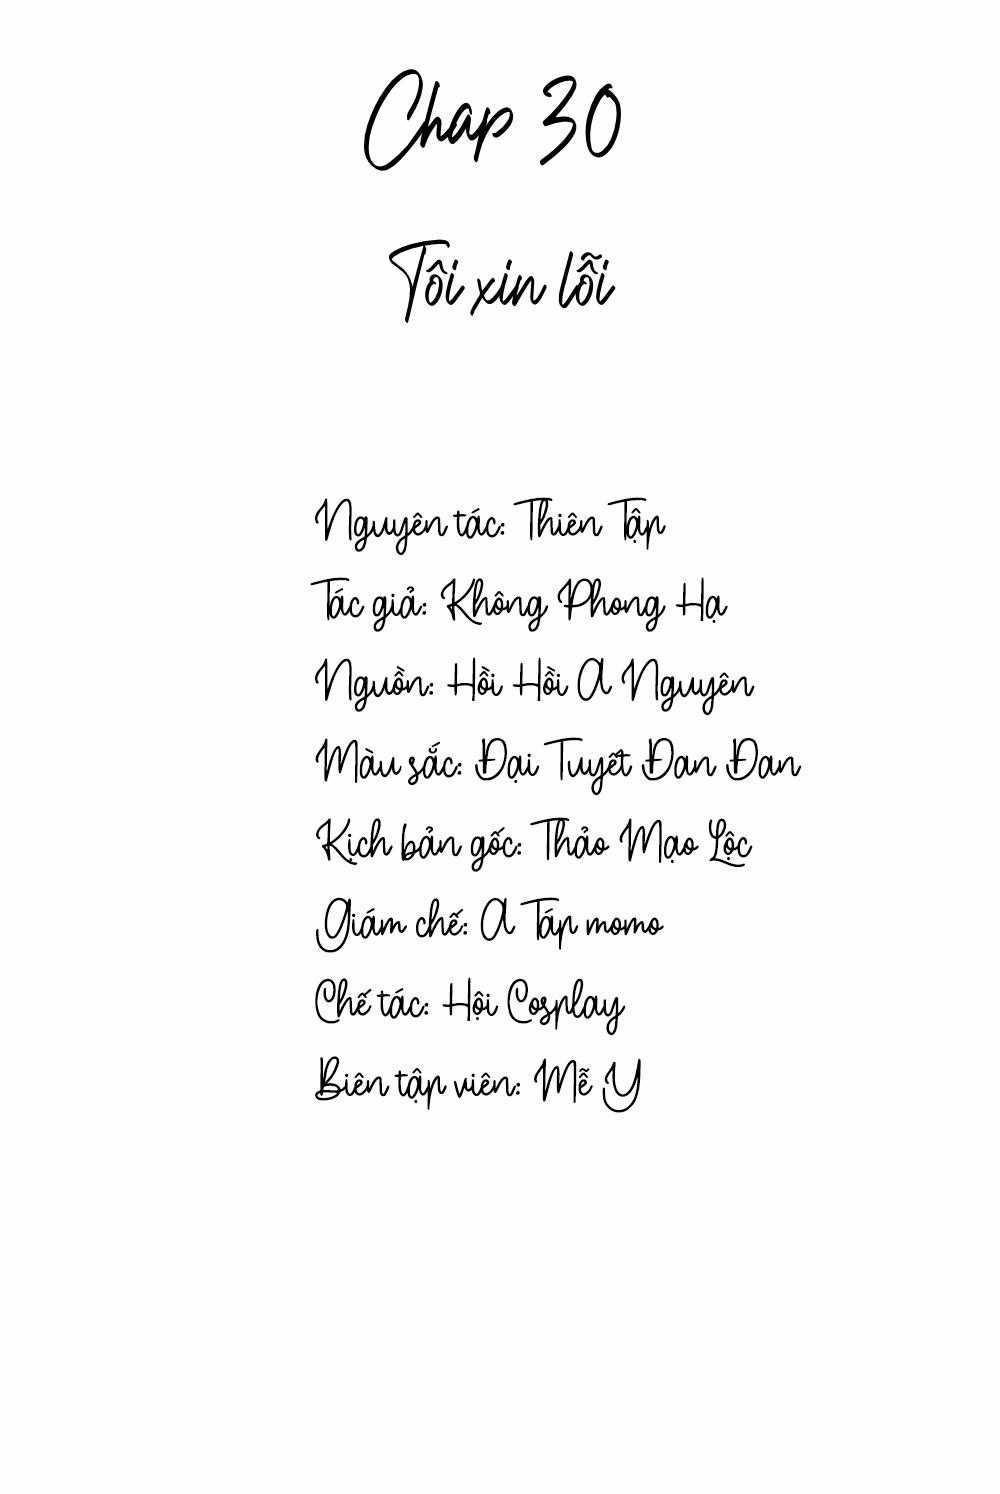 Chap 30
Tôi xin lỗi
Nguyên tác: Thiên Tập
Tác giả: Không Phong Hạ
Nguồn: Hồi Hồi A Nguyên
Màu sắc: Đại Tuyết Đan Đan
Kịch bản gốc: Thảo Mạo Lộc
Giám chế: A Táp momo
Chế tác: Hội Cosplay
Biên tập viên: Mễ Y